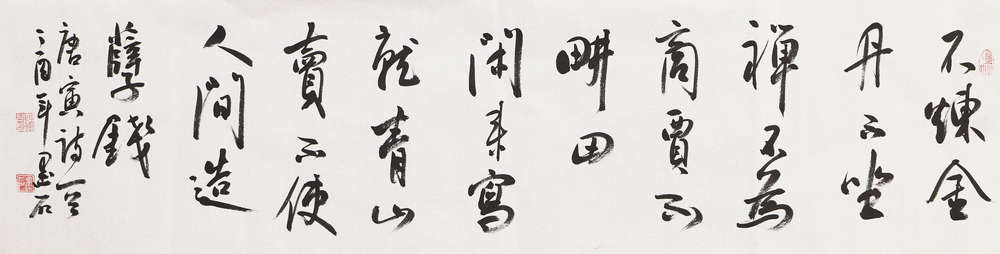 不煉金
丹不坐
禪不為
商賈不
畊田
閑来寫
就青山
賣不使
人間造
孽錢
唐寅詩一首
丁酉年墨石